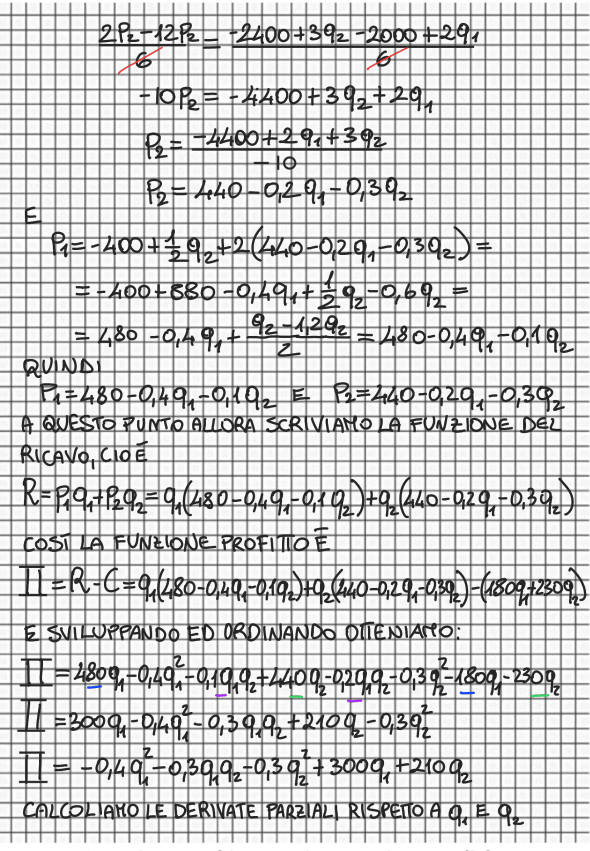 2P₂-12P₂/6 = -2400+3q₂-2000+2q₁/6
-10P₂ = -4400+3q₂+2q₁
P₂ = -4400+2q₁+3q₂/-10
P₂ = 440-0,2q₁-0,3q₂
E
P₁=-400+1/2q₂+2(440-0,2q₁-0,3q₂)=
=-400+880-0,4q₁+1/2q₂-0,6q₂=
=480-0,4q₁+q₂-1,2q₂/2=480-0,4q₁-0,1q₂
QUINDI
P₁=480-0,4q₁-0,1q₂ E P₂=440-0,2q₁-0,3q₂
A QUESTO PUNTO ALLORA SCRIVIAMO LA FUNZIONE DEL
RICAVO, CIOÈ
R=P₁q₁+P₂q₂=q₁(480-0,4q₁-0,1q₂)+q₂(440-0,2q₁-0,3q₂)
COSÌ LA FUNZIONE PROFITTO È
Π=R-C=q₁(480-0,4q₁-0,1q₂)+q₂(440-0,2q₁-0,3q₂)-(180q₁+230q₂)
E SVILUPPANDO ED ORDINANDO OTTENIAMO:
Π=480q₁-0,4q₁²-0,1q₁q₂+440q₂-0,2q₁q₂-0,3q₂²-180q₁-230q₂
Π=300q₁-0,4q₁²-0,3q₁q₂+210q₂-0,3q₂²
Π=-0,4q₁²-0,3q₁q₂-0,3q₂²+300q₁+210q₂
CALCOLIAMO LE DERIVATE PARZIALI RISPETTO A q₁ E q₂